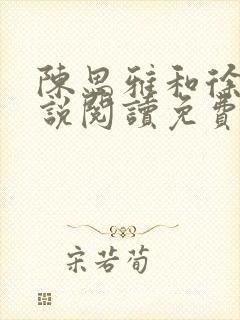 陳思雅和徐
說閱讀免費
宋若荀